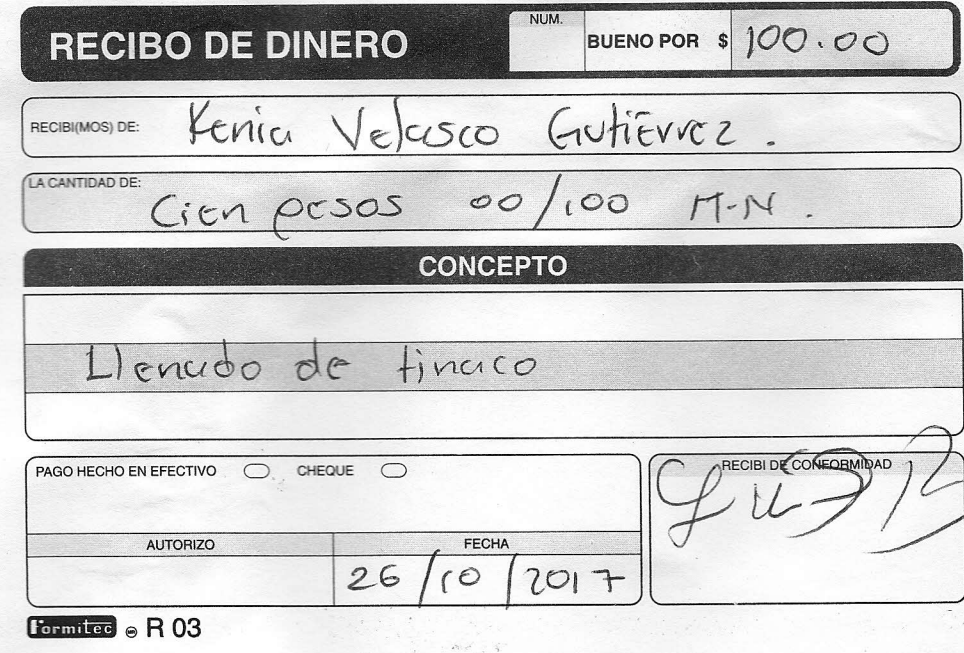 RECIBO DE DINERO
NUM.
BUENO POR $ 100.00
RECIBI(MOS) DE: Kenia Velasco Gutiérrez.
LA CANTIDAD DE: Cien pesos 00/100 M-N.
CONCEPTO
Llenado de tinaco
PAGO HECHO EN EFECTIVO CHEQUE
RECIBI DE CONFORMIDAD
AUTORIZO FECHA
26/10/2017
Formitec R 03